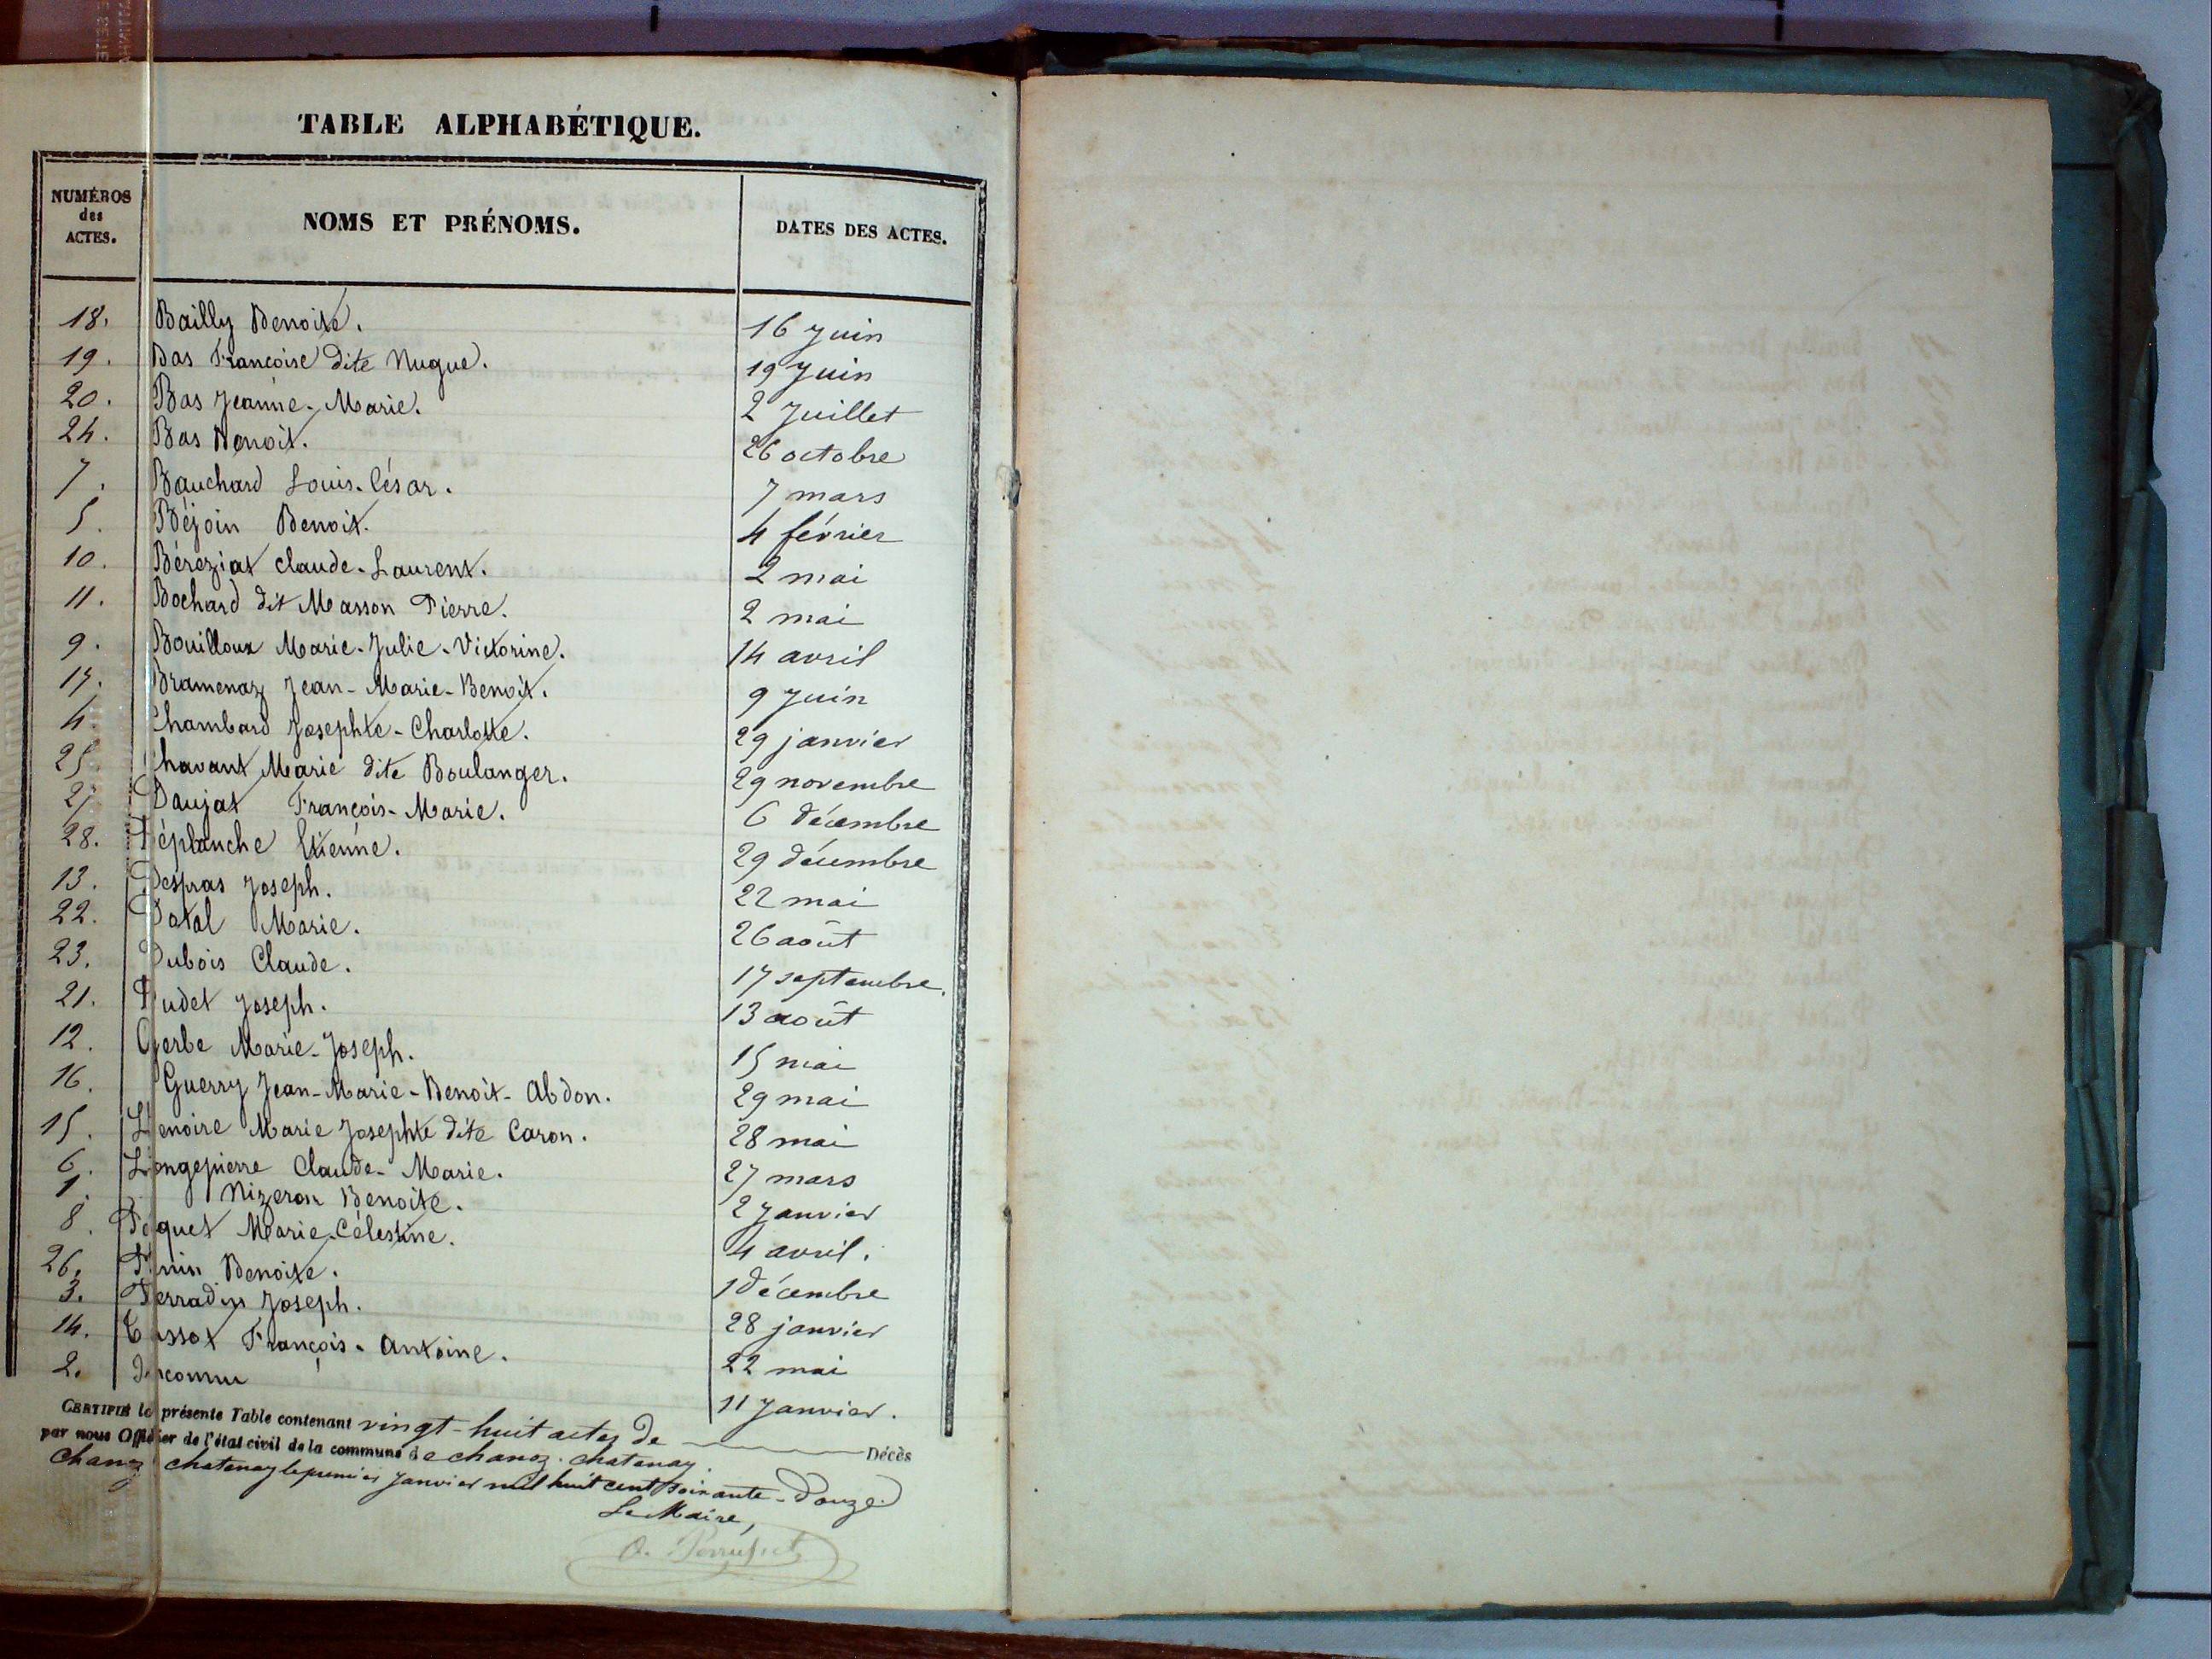 TABLE ALPHABÉTIQUE.
NUMÉROS des ACTES. NOMS ET PRÉNOMS. DATES DES ACTES.
18. Bailly Benoite. 16 Juin
19. Bas Francoise dite Nugue. 19 Juin
20. Bas Jeanne-Marie. 2 Juillet
24. Bas Benoit. 26 octobre
7. Bauchard Louis-César. 7 mars
5. Béjoin Benoit. 4 février
10. Béreziat Claude-Laurent. 2 mai
11. Bochard dit Masson Pierre. 2 mai
9. Bouilloux Marie-Julie-Victorine. 14 avril
17. Bramenaz Jean-Marie-Benoit. 9 Juin
4. Chambard Josephte-Charlotte. 29 janvier
25. Chavant Marie dite Boulanger. 29 novembre
27. Daujat François-Marie. 6 décembre
28. Déplanche Etienne. 29 décembre
13. Despras Joseph. 22 mai
22. Datal Marie. 26 août
23. Dubois Claude. 17 septembre.
21. Pudet Joseph. 13 août
12. Gerbe Marie-Joseph. 15 mai
16. Guerry Jean-Marie-Benoit-Abdon. 29 mai
15. Lenoire Marie Josephte dite Caron. 28 mai
6. Longepierre Claude-Marie. 27 mars
1. Nizeron Benoite. 2 Janvier
8. Marie-Célestine. 4 avril.
26. Benoite. 1 décembre
3. Joseph. 28 janvier
14. Tissot François-Antoine. 22 mai
2. Inconnu 11 Janvier.
CERTIFIÉ la présente Table contenant vingt-huit actes de Décès
par nous Officier de l'état civil de la commune de chanoz-chatenay.
Chanoz chatenay le premier Janvier mil huit cent soixante-douze
Le Maire,